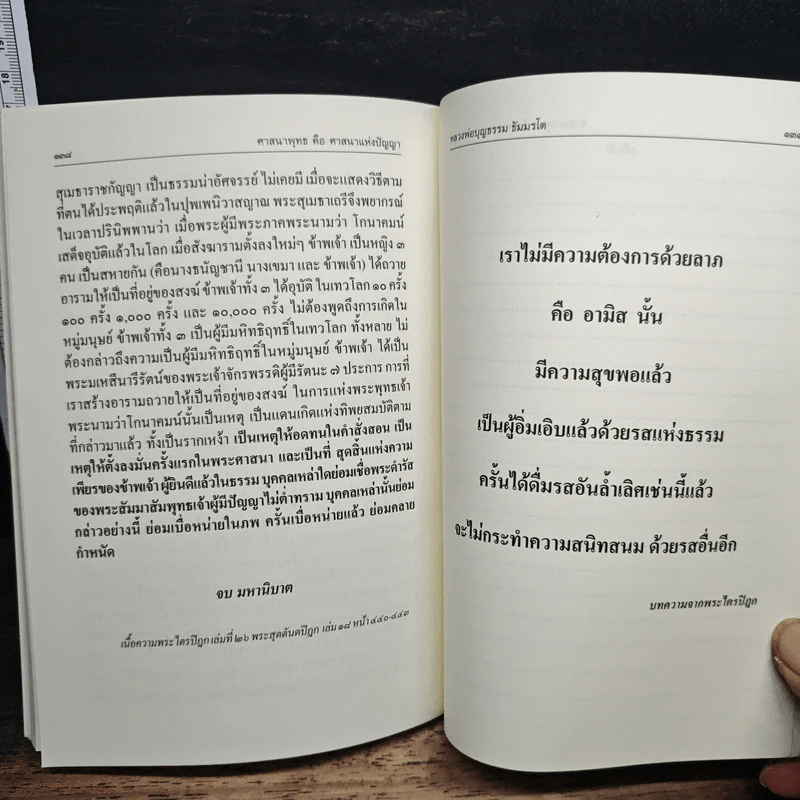 ๑๓๘ ศาสนาพุทธ คือ ศาสนาแห่งปัญญา
สุเมธาราชกัญญา เป็นธรรมน่าอัศจรรย์ ไม่เคยมี เมื่อจะแสดงวิธีตาม
ที่ตนได้ประพฤติแล้วในปุพเพนิวาสญาณ พระสุเมธาเถรีจึงพยากรณ์
ในเวลาปรินิพพานว่า เมื่อพระผู้มีพระภาคพระนามว่า โกนาคมน์
เสด็จอุบัติแล้วในโลก เมื่อสังฆารามตั้งลงใหม่ๆ ข้าพเจ้า เป็นหญิง ๓
คน เป็นสหายกัน (คือนางธนัญชานี นางเขมา และ ข้าพเจ้า) ได้ถวาย
อารามให้เป็นที่อยู่ของสงฆ์ ข้าพเจ้าทั้ง ๓ ได้อุบัติ ในเทวโลก ๑๐ ครั้ง
๑๐๐ ครั้ง ๑,๐๐๐ ครั้ง และ ๑๐,๐๐๐ ครั้ง ไม่ต้องพูดถึงการเกิดใน
หมู่มนุษย์ ข้าพเจ้าทั้ง ๓ เป็นผู้มีมหิทธิฤทธิ์ในเทวโลก ทั้งหลาย ไม่
ต้องกล่าวถึงความเป็นผู้มีมหิทธิฤทธิ์ในหมู่มนุษย์ ข้าพเจ้า ได้เป็น
พระมเหสีนารีรัตน์ของพระเจ้าจักรพรรดิผู้มีรัตนะ ๗ ประการ การที่
เราสร้างอารามถวายให้เป็นที่อยู่ของสงฆ์ ในการแห่งพระพุทธเจ้า
พระนามว่าโกนาคมน์นั้นเป็นเหตุ เป็นแดนเกิดแห่งทิพยสมบัติตาม
ที่กล่าวมาแล้ว ทั้งเป็นรากเหง้า เป็นเหตุให้อดทนในคำสั่งสอน เป็น
เหตุให้ตั้งลงมั่นครั้งแรกในพระศาสนา และเป็นที่ สุดสิ้นแห่งความ
เพียรของข้าพเจ้า ผู้ยินดีแล้วในธรรม บุคคลเหล่าใดย่อมเชื่อพระดำรัส
ของพระสัมมาสัมพุทธเจ้าผู้มีปัญญาไม่ต่ำทราม บุคคลเหล่านั้นย่อม
กล่าวอย่างนี้ ย่อมเบื่อหน่ายในภพ ครั้นเบื่อหน่ายแล้ว ย่อมคลาย
กำหนัด
จบ มหานิบาต
เนื้อความพระไตรปิฎก เล่มที่ ๒๖ พระสุตตันตปิฎก เล่ม ๑๘ หน้า ๔๔๐-๔๔๓
หลวงพ่อบุญธรรม ธัมมรโต
เราไม่มีความต้องการด้วยลาภ
คือ อามิส นั้น
มีความสุขพอแล้ว
เป็นผู้อิ่มเอิบแล้วด้วยรสแห่งธรรม
ครั้นได้ดื่มรสอันล้ำเลิศเช่นนี้แล้ว
จะไม่กระทำความสนิทสนม ด้วยรสอื่นอีก
บทความจากพระไตรปิฎก
18
19